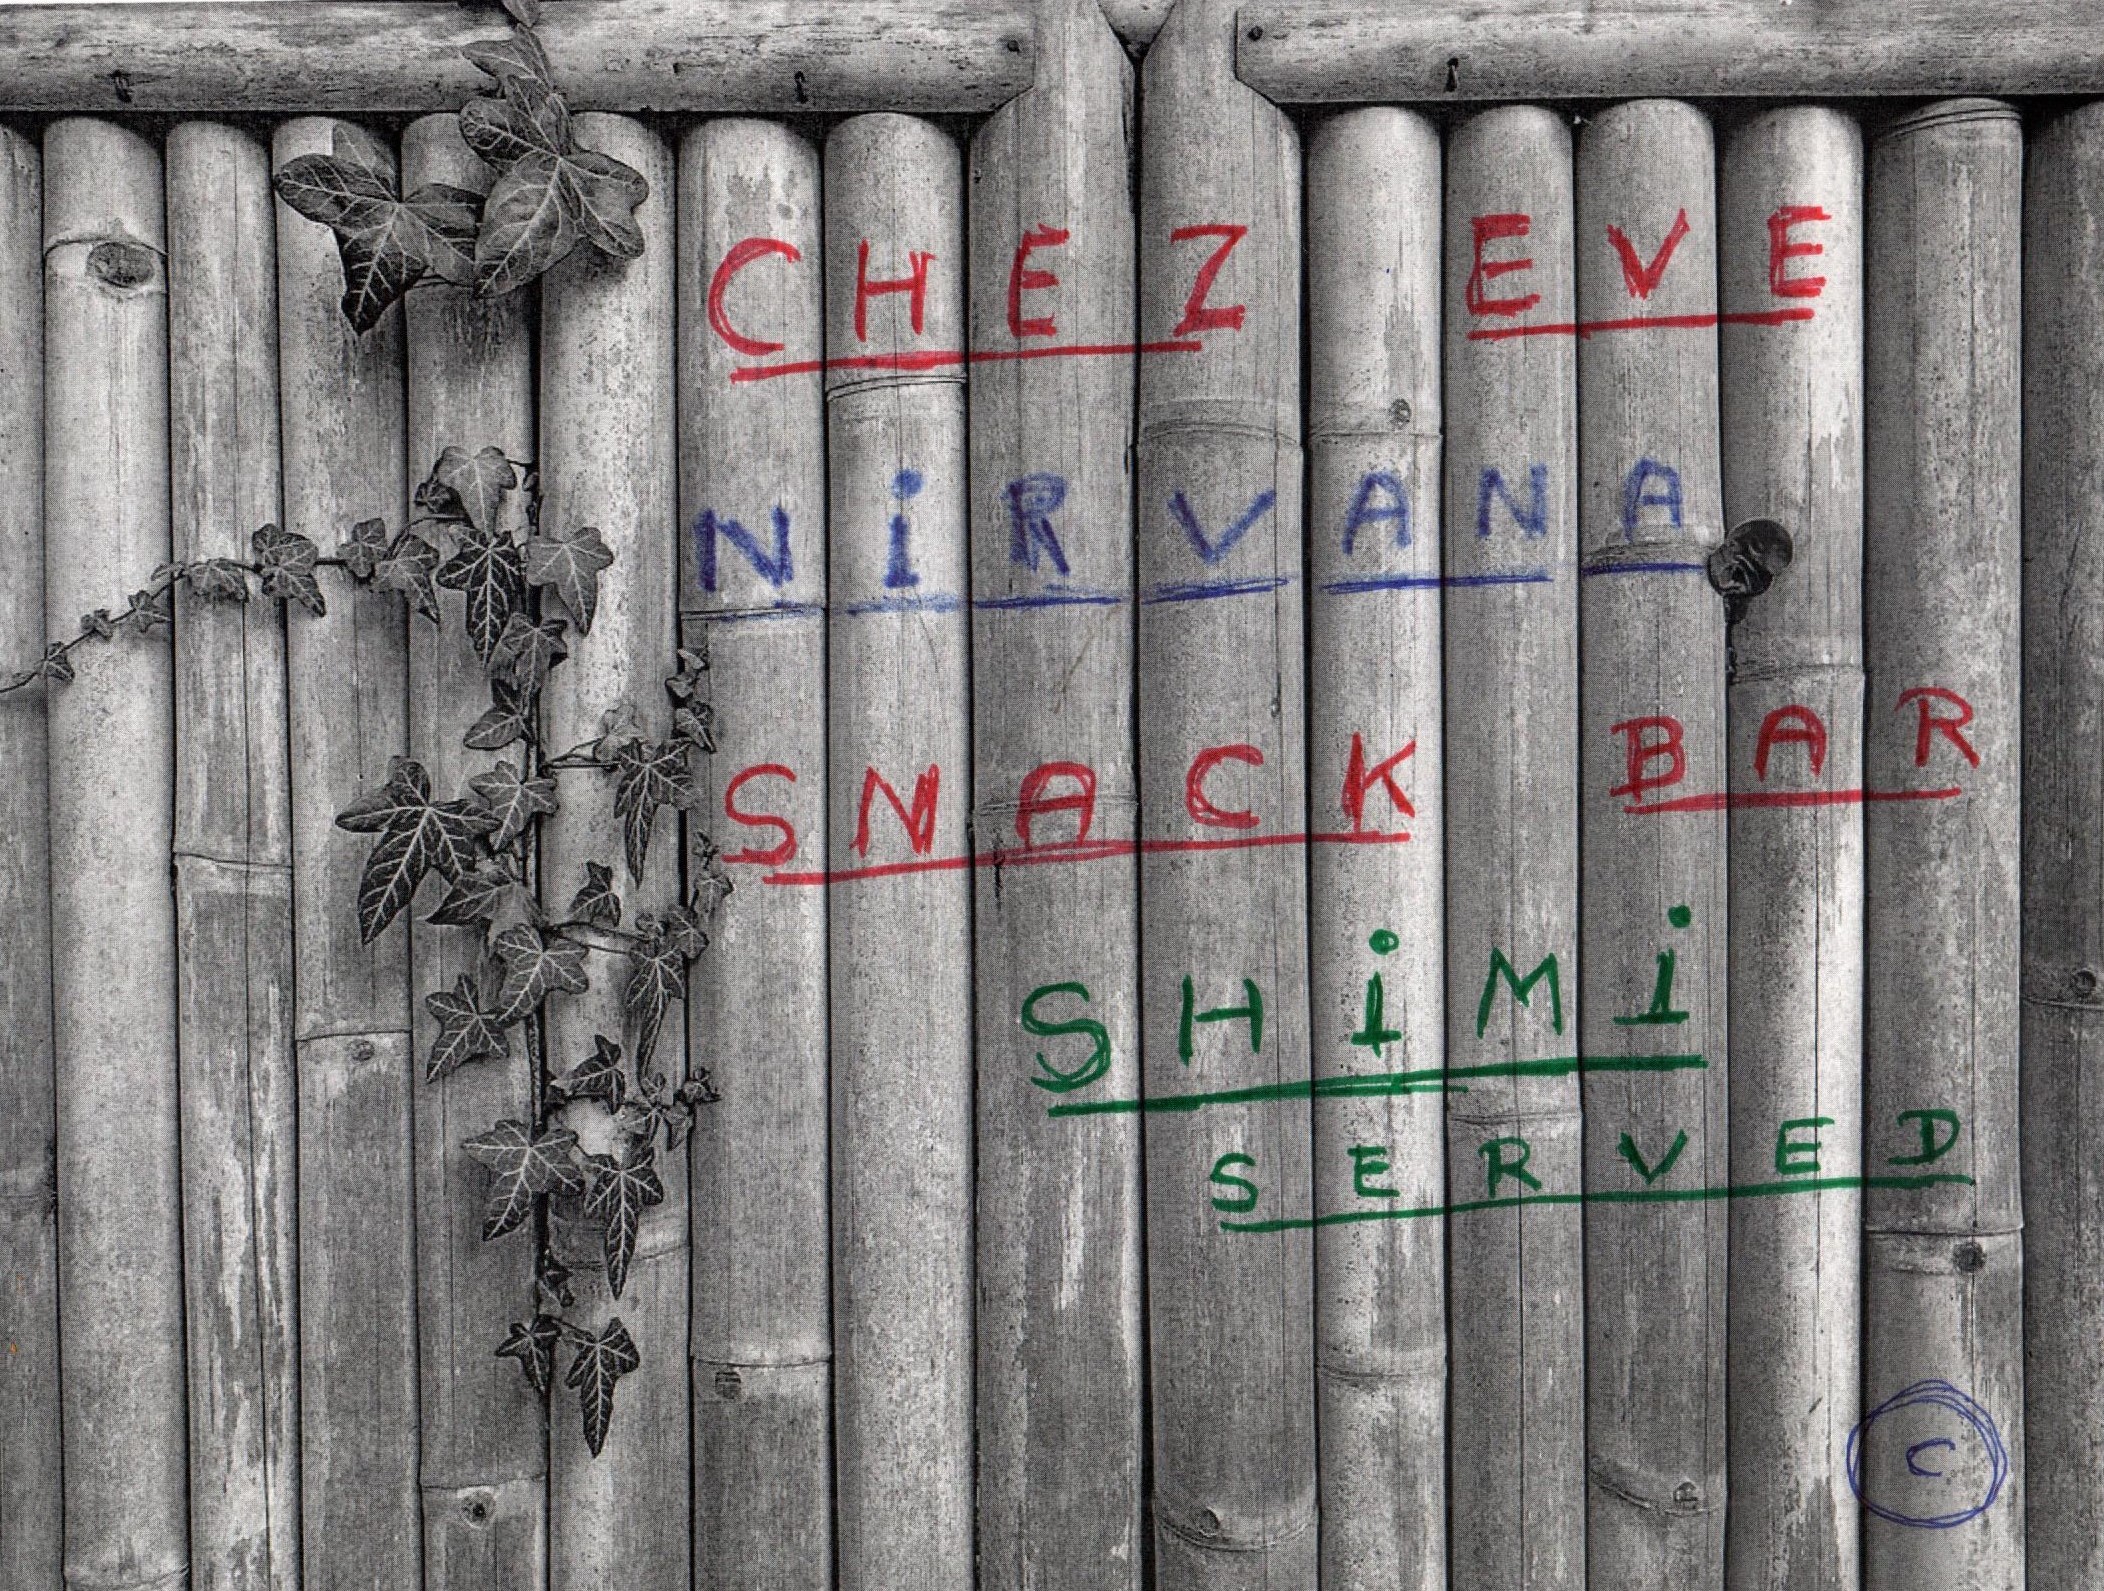 CHEZ EVE
NiRVANA
SNACK BAR
SHiMi
SERVED
©